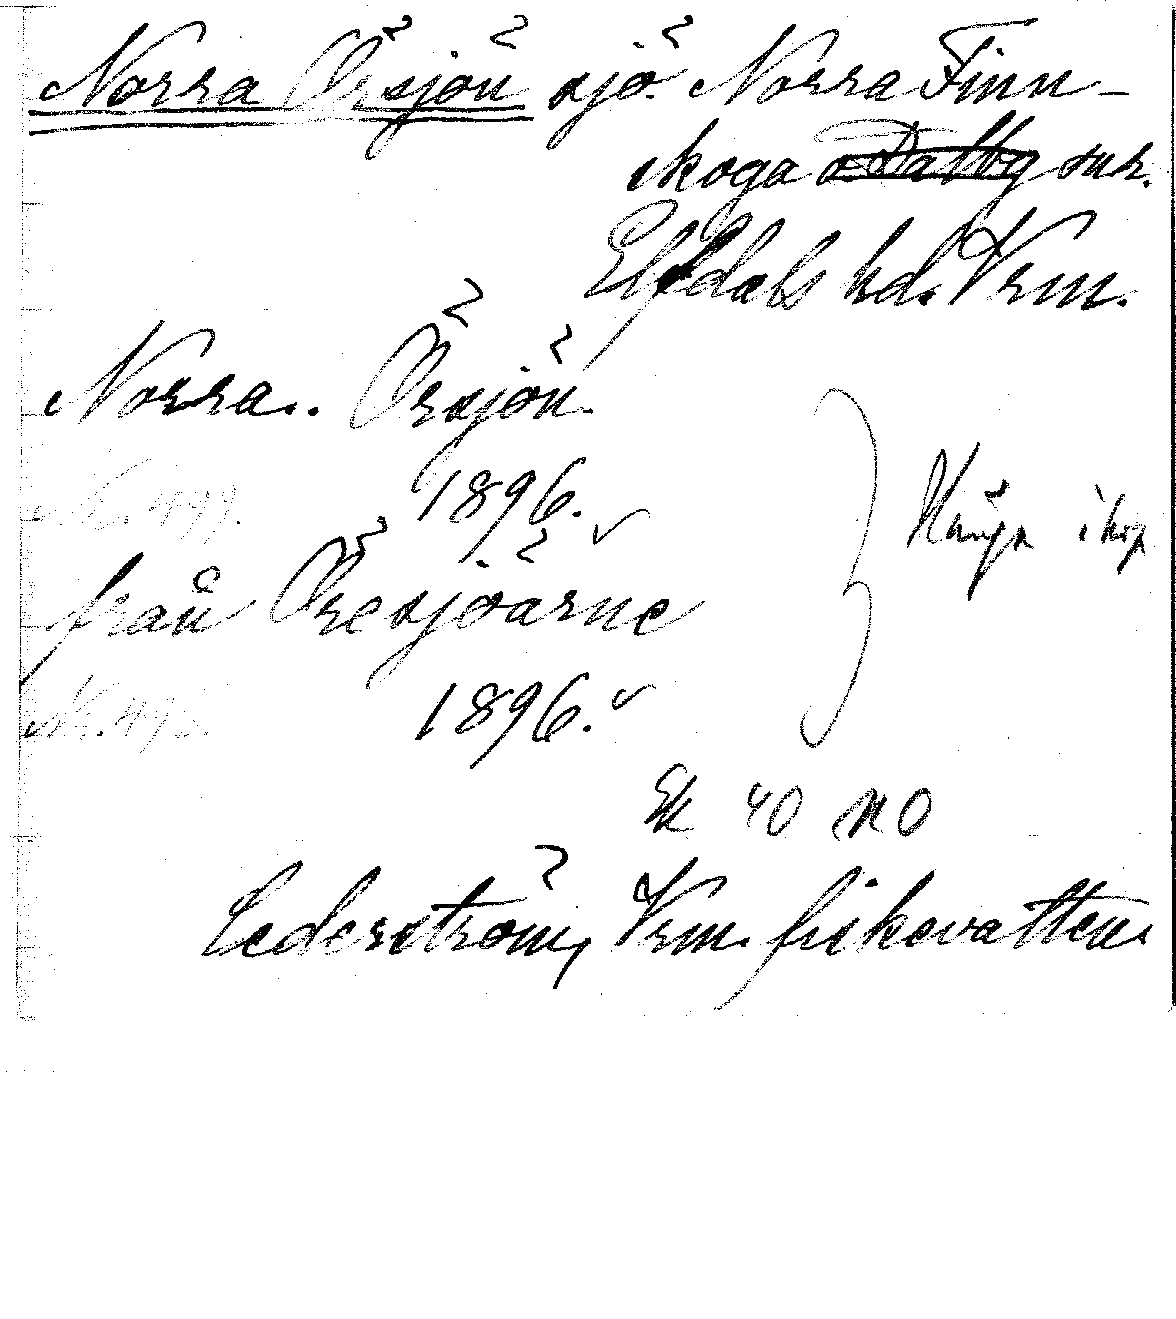 Norra Örsjön sjö. Norra Finn-
skoga o. Dalby snr.
Elfdals hd. Vrm.
Norra. Örsjön.
1896.
från Öresjöarne
1896.
Hänga ihop
Ek 40 NO
Cederström, Vrm. fiskevatten.